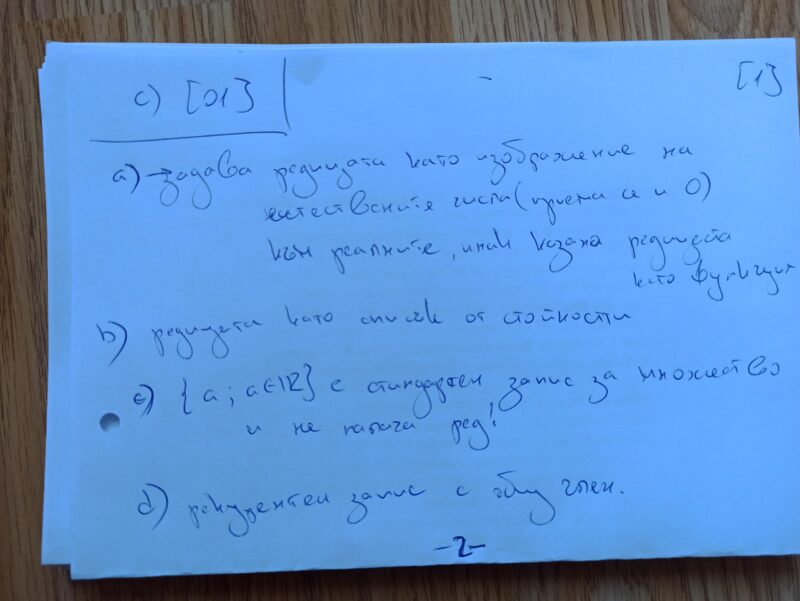 c) [01]
[1]
a) задава редицата като изображение на
естествените числа (приема се и 0)
към реалните, инак казана редицата
като функция
b) редицата като списък от стойности
c) {a ; a∈ℝ} е стандартен запис за множество
и не налага ред!
d) рекурентен запис с общ член.
-2-